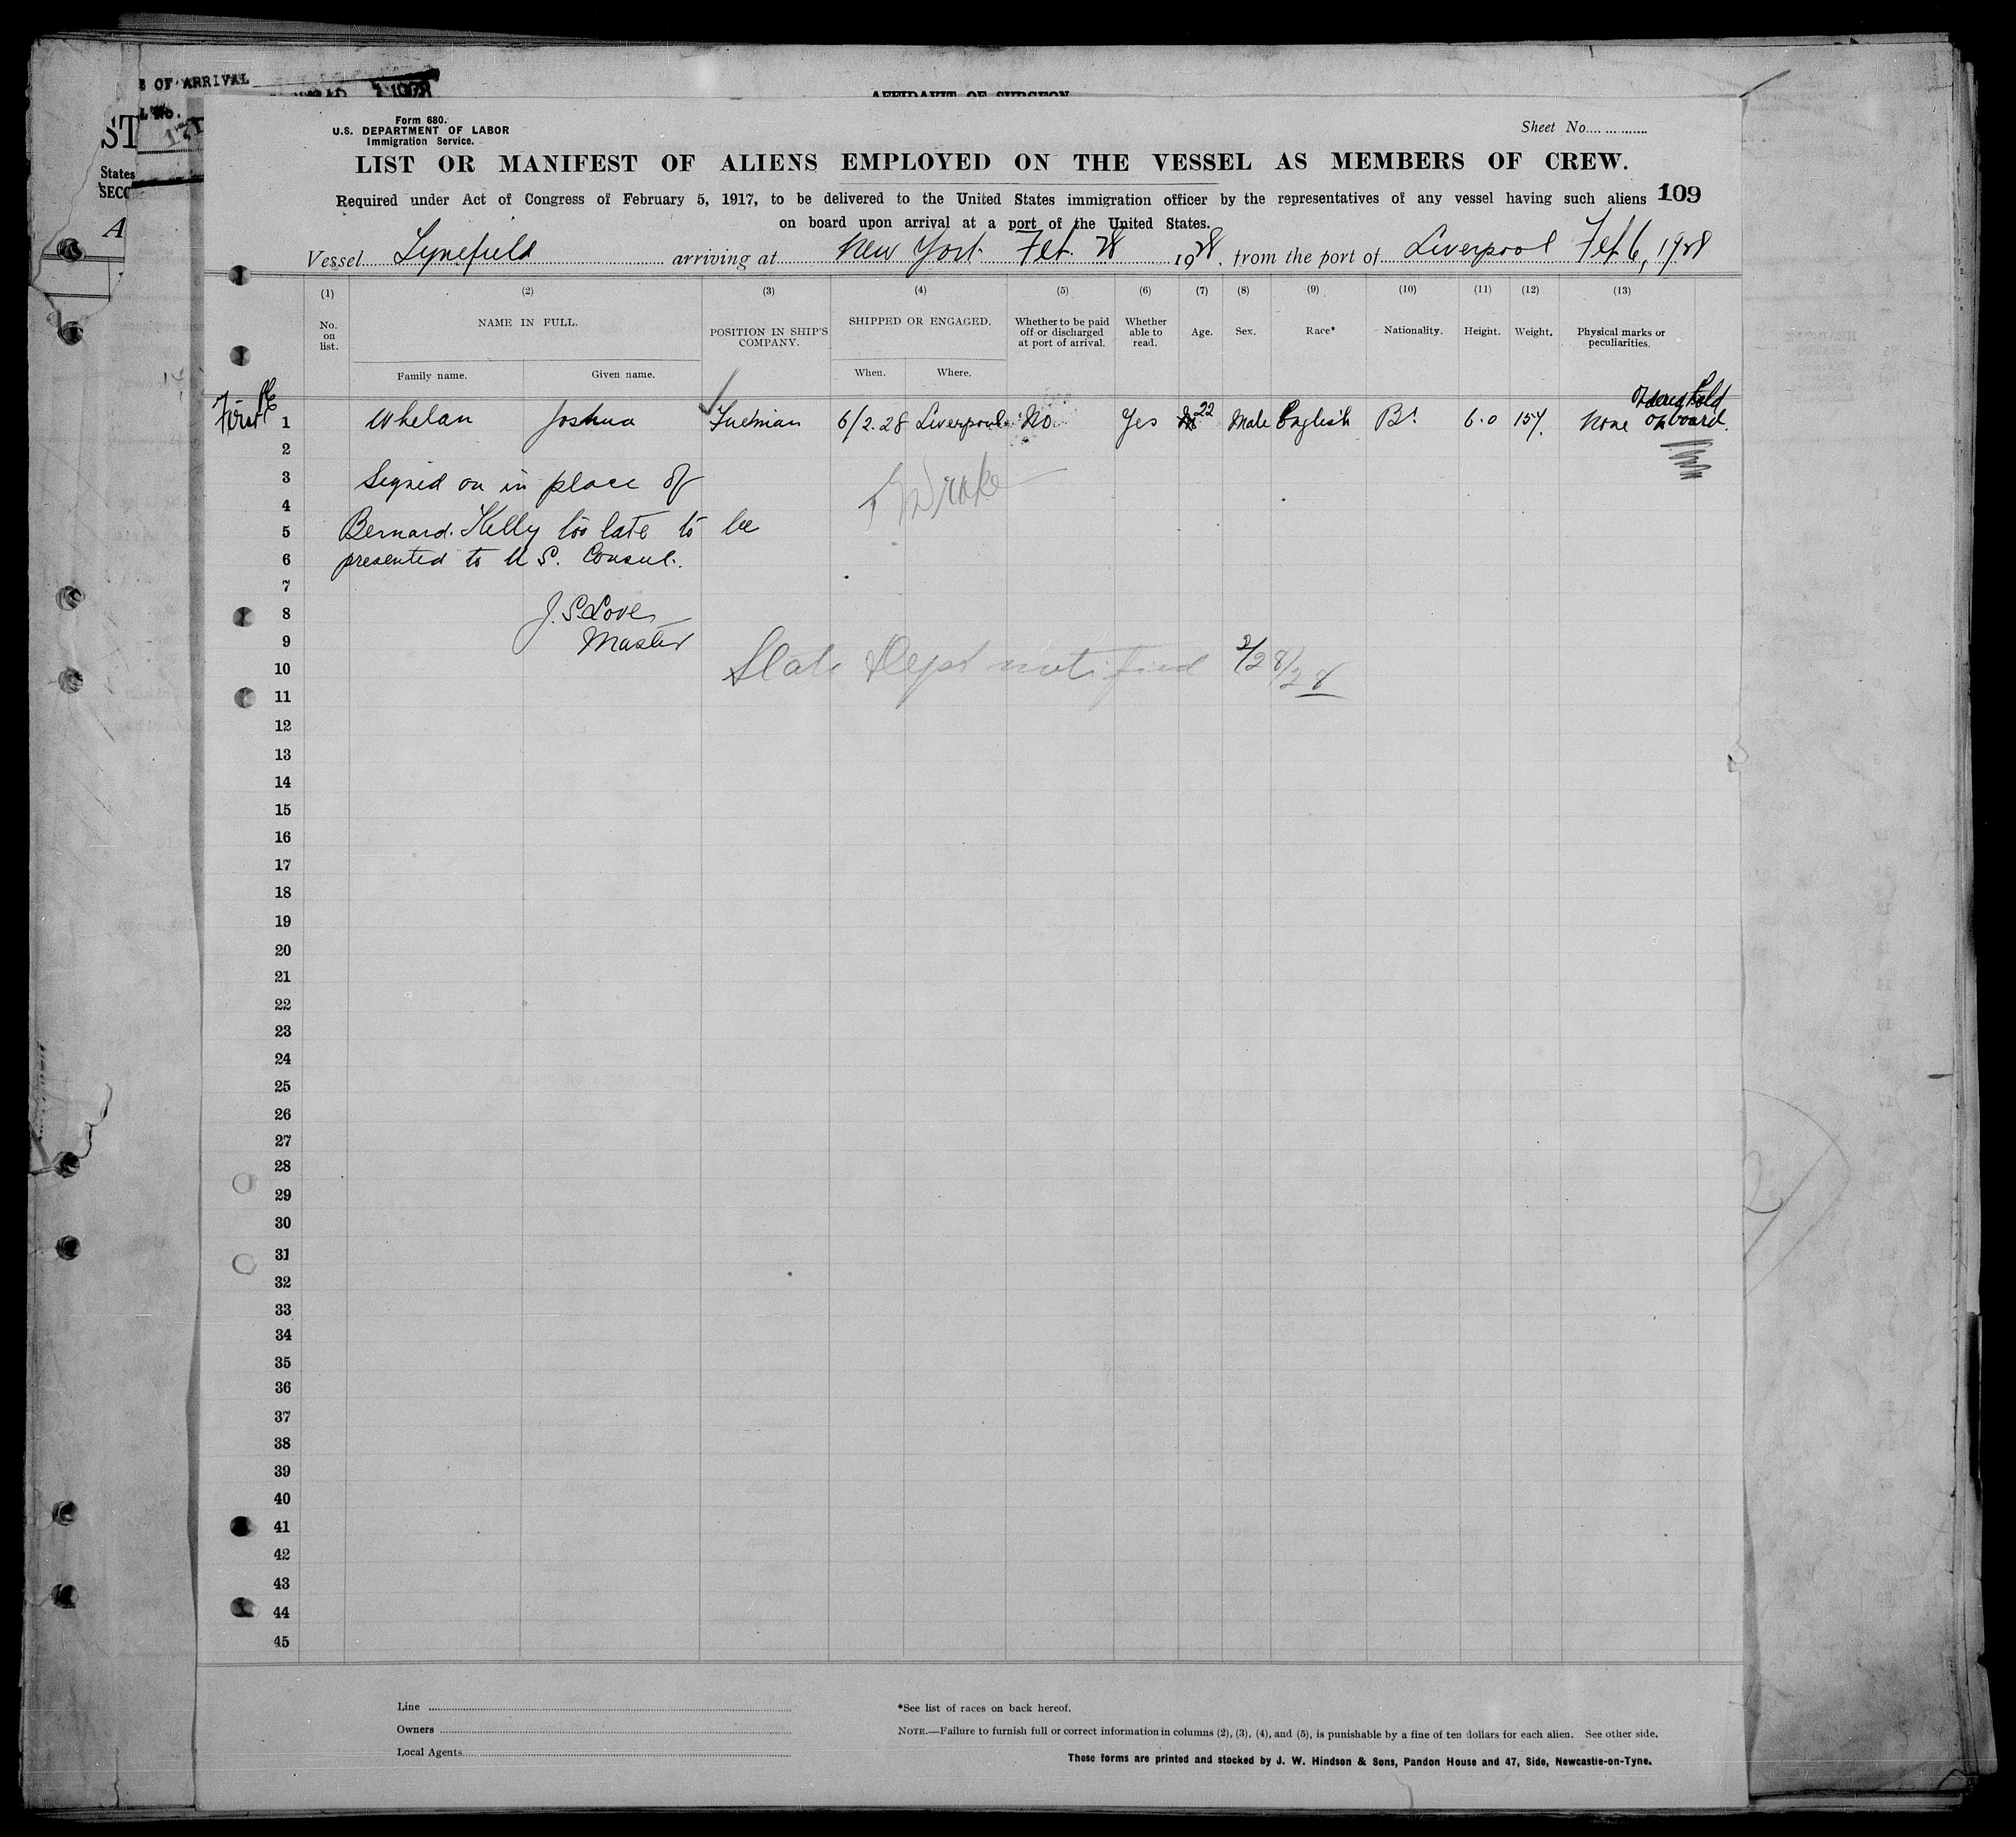 E OF ARRIVAL
AFFIDAVIT OF SURGEON
L No.
ST
States
SECO
A
Form 680.
U.S. DEPARTMENT OF LABOR
Immigration Service.
Sheet No.
LIST OR MANIFEST OF ALIENS EMPLOYED ON THE VESSEL AS MEMBERS OF CREW.
Required under Act of Congress of February 5, 1917, to be delivered to the United States immigration officer by the representatives of any vessel having such aliens
109
on board upon arrival at a port of the United States.
Vessel Lynefield arriving at New York Feb. 28 1928, from the port of Liverpool Feb 6, 1928
(1) (2) (3) (4) (5) (6) (7) (8) (9) (10) (11) (12) (13)
No. on list.
NAME IN FULL.
Family name. Given name.
POSITION IN SHIP'S COMPANY.
SHIPPED OR ENGAGED.
When. Where.
Whether to be paid off or discharged at port of arrival.
Whether able to read.
Age.
Sex.
Race*
Nationality.
Height.
Weight.
Physical marks or peculiarities.
First
1 Whelan Joshua Fireman 6/2.28 Liverpool No Yes 22 Male English Br 6.0 157 None on board.
2
3 Signed on in place of
Drake
4
5 Bernard Kelly too late to be
6 presented to U S. Consul.
7
8 J. S. Love
9 Master
10 State Dept notified 2/28/28
11
12
13
14
15
16
17
18
19
20
21
22
23
24
25
26
27
28
29
30
31
32
33
34
35
36
37
38
39
40
41
42
43
44
45
Line
Owners
Local Agents
*See list of races on back hereof.
NOTE.—Failure to furnish full or correct information in columns (2), (3), (4), and (5), is punishable by a fine of ten dollars for each alien. See other side.
These forms are printed and stocked by J. W. Hindson & Sons, Pandon House and 47, Side, Newcastle-on-Tyne.